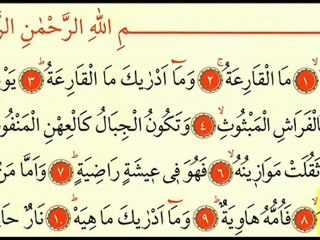 مِ اللهِ الرَّحْمٰنِ
﴿١﴾ مَا الْقَارِعَةُ ﴿٢﴾ وَمَٓا اَدْرٰيكَ مَا الْقَارِعَةُ ﴿٣﴾ يَوْ
الْفَرَاشِ الْمَبْثُوثِ ﴿٤﴾ وَتَكُونُ الْجِبَالُ كَالْعِهْنِ الْمَنْفُو
ثَقُلَتْ مَوَازٖينُهُ ﴿٦﴾ فَهُوَ فٖى عٖيشَةٍ رَاضِيَةٍ ﴿٧﴾ وَاَمَّا مَنْ
﴿٨﴾ فَاُمُّهُ هَاوِيَةٌ ﴿٩﴾ وَمَٓا اَدْرٰيكَ مَا هِيَهْ ﴿١٠﴾ نَارٌ حَا